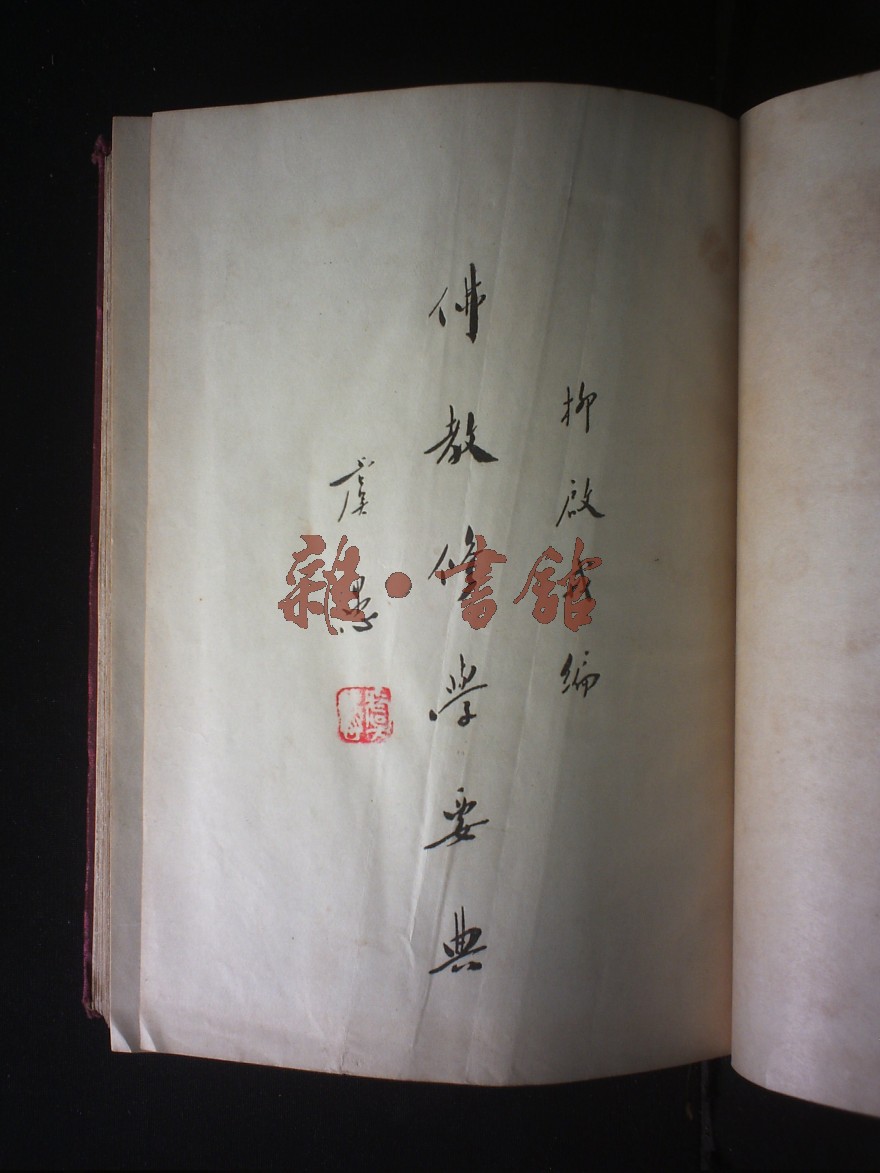 柳啟 編
佛教修學要典
虞愚
雜·書館